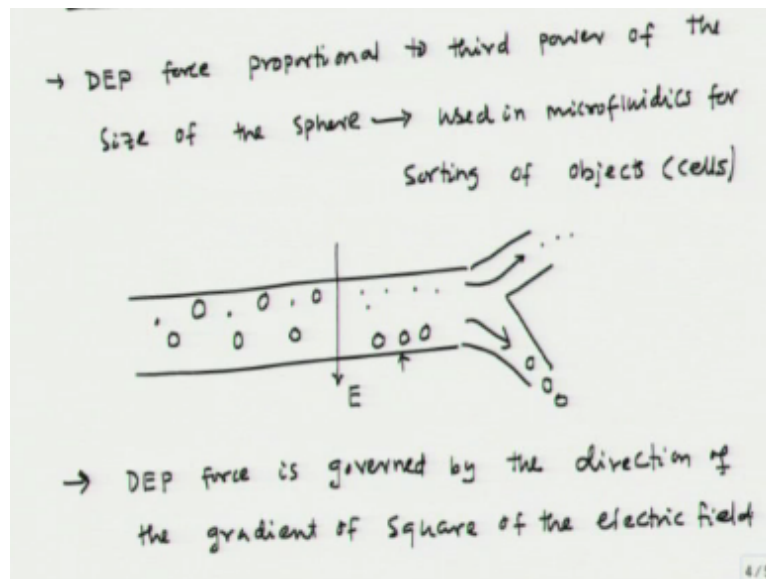 → DEP force proportional to third power of the
size of the sphere → used in microfluidics for
Sorting of objects (cells)
E
→ DEP force is governed by the direction of
the gradient of square of the electric field